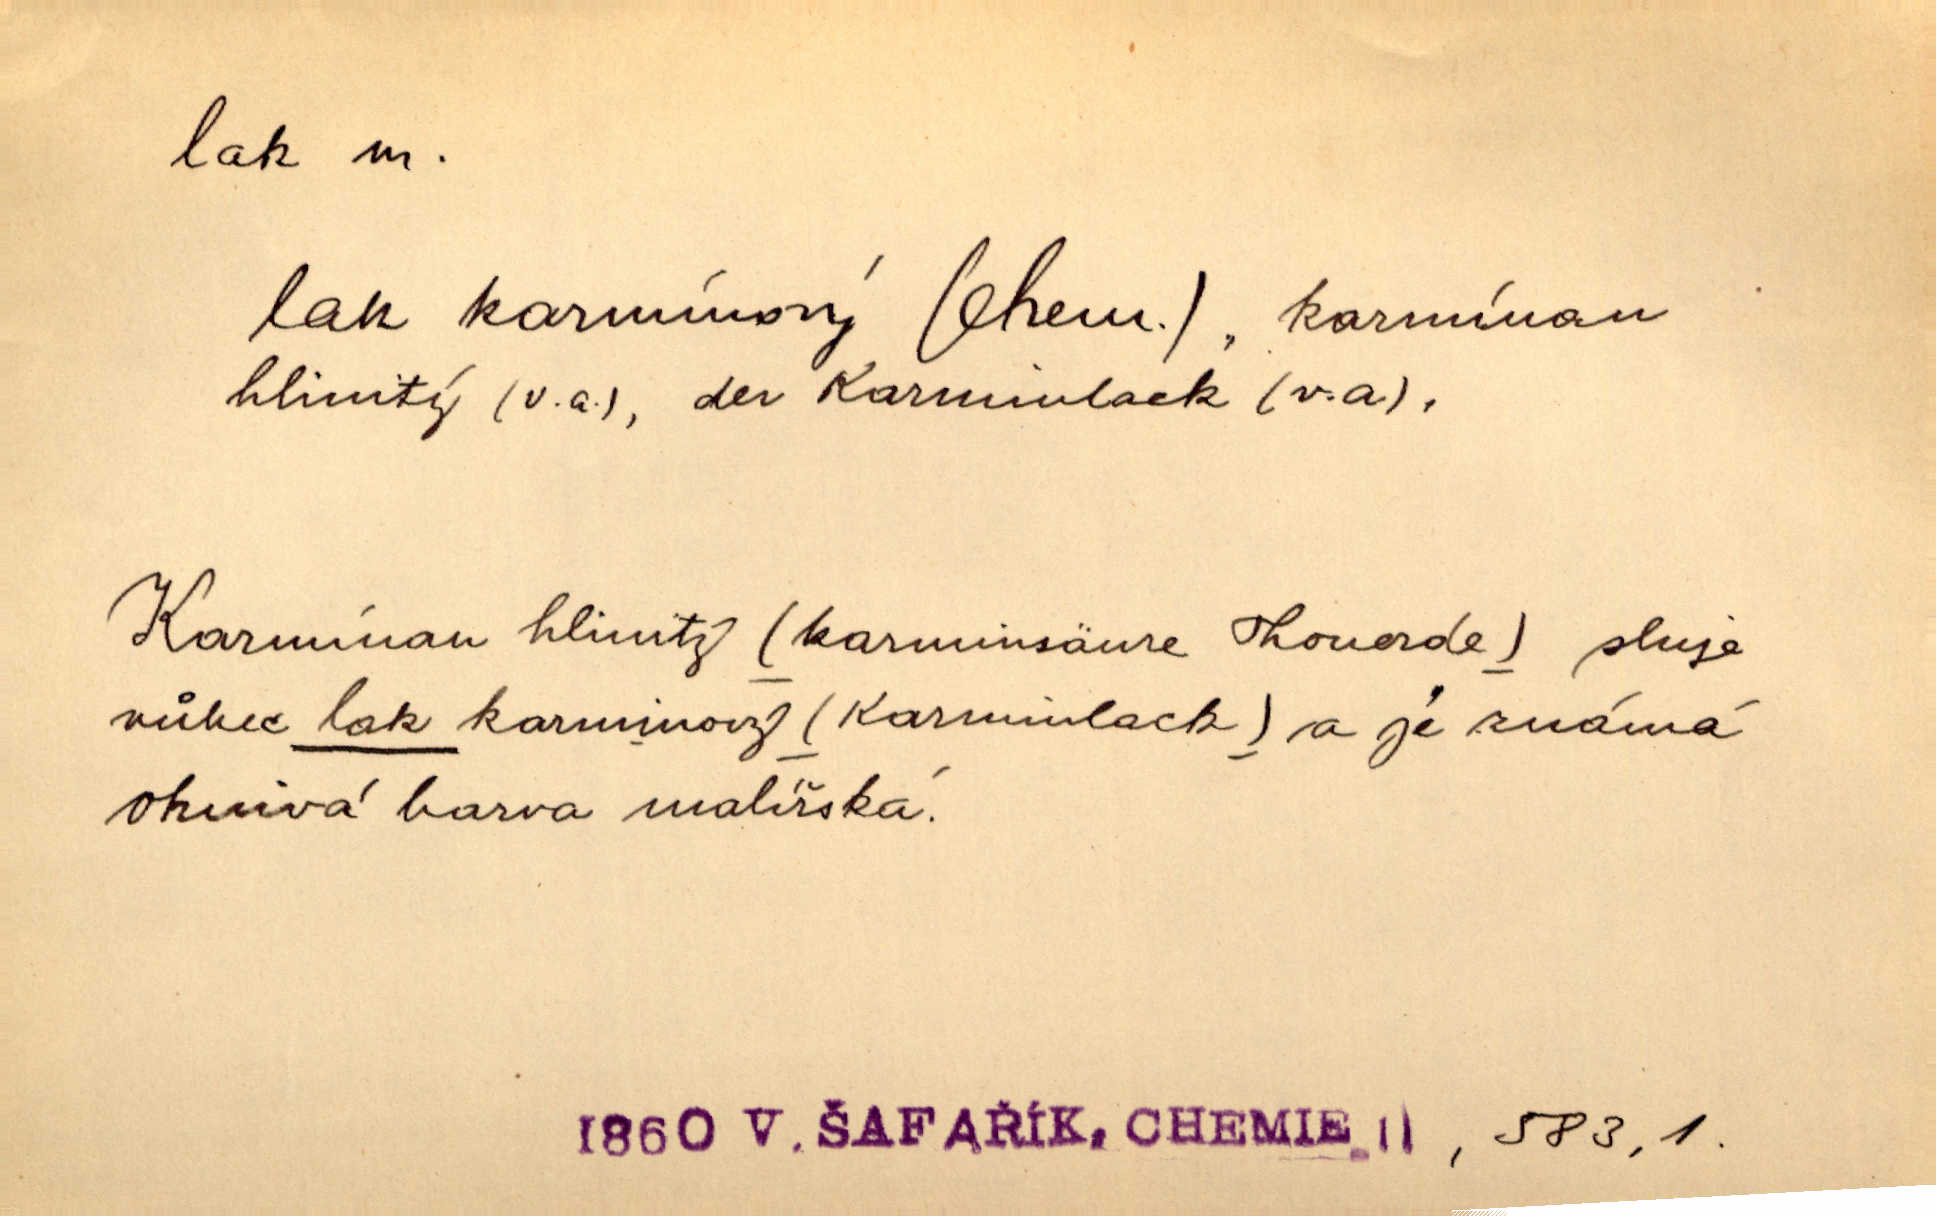 lak m.
lak karmínový (chem.), karmínan
hlinitý (v.a.), der Karminlack (v.a.),
Karmínan hlinitý (karminsäure Thonerde) sluje
vůbec lak karminový (Karminlack) a je známá
ohnivá barva malířská.
1860 V. ŠAFAŘÍK, CHEMIE II, 583, 1.